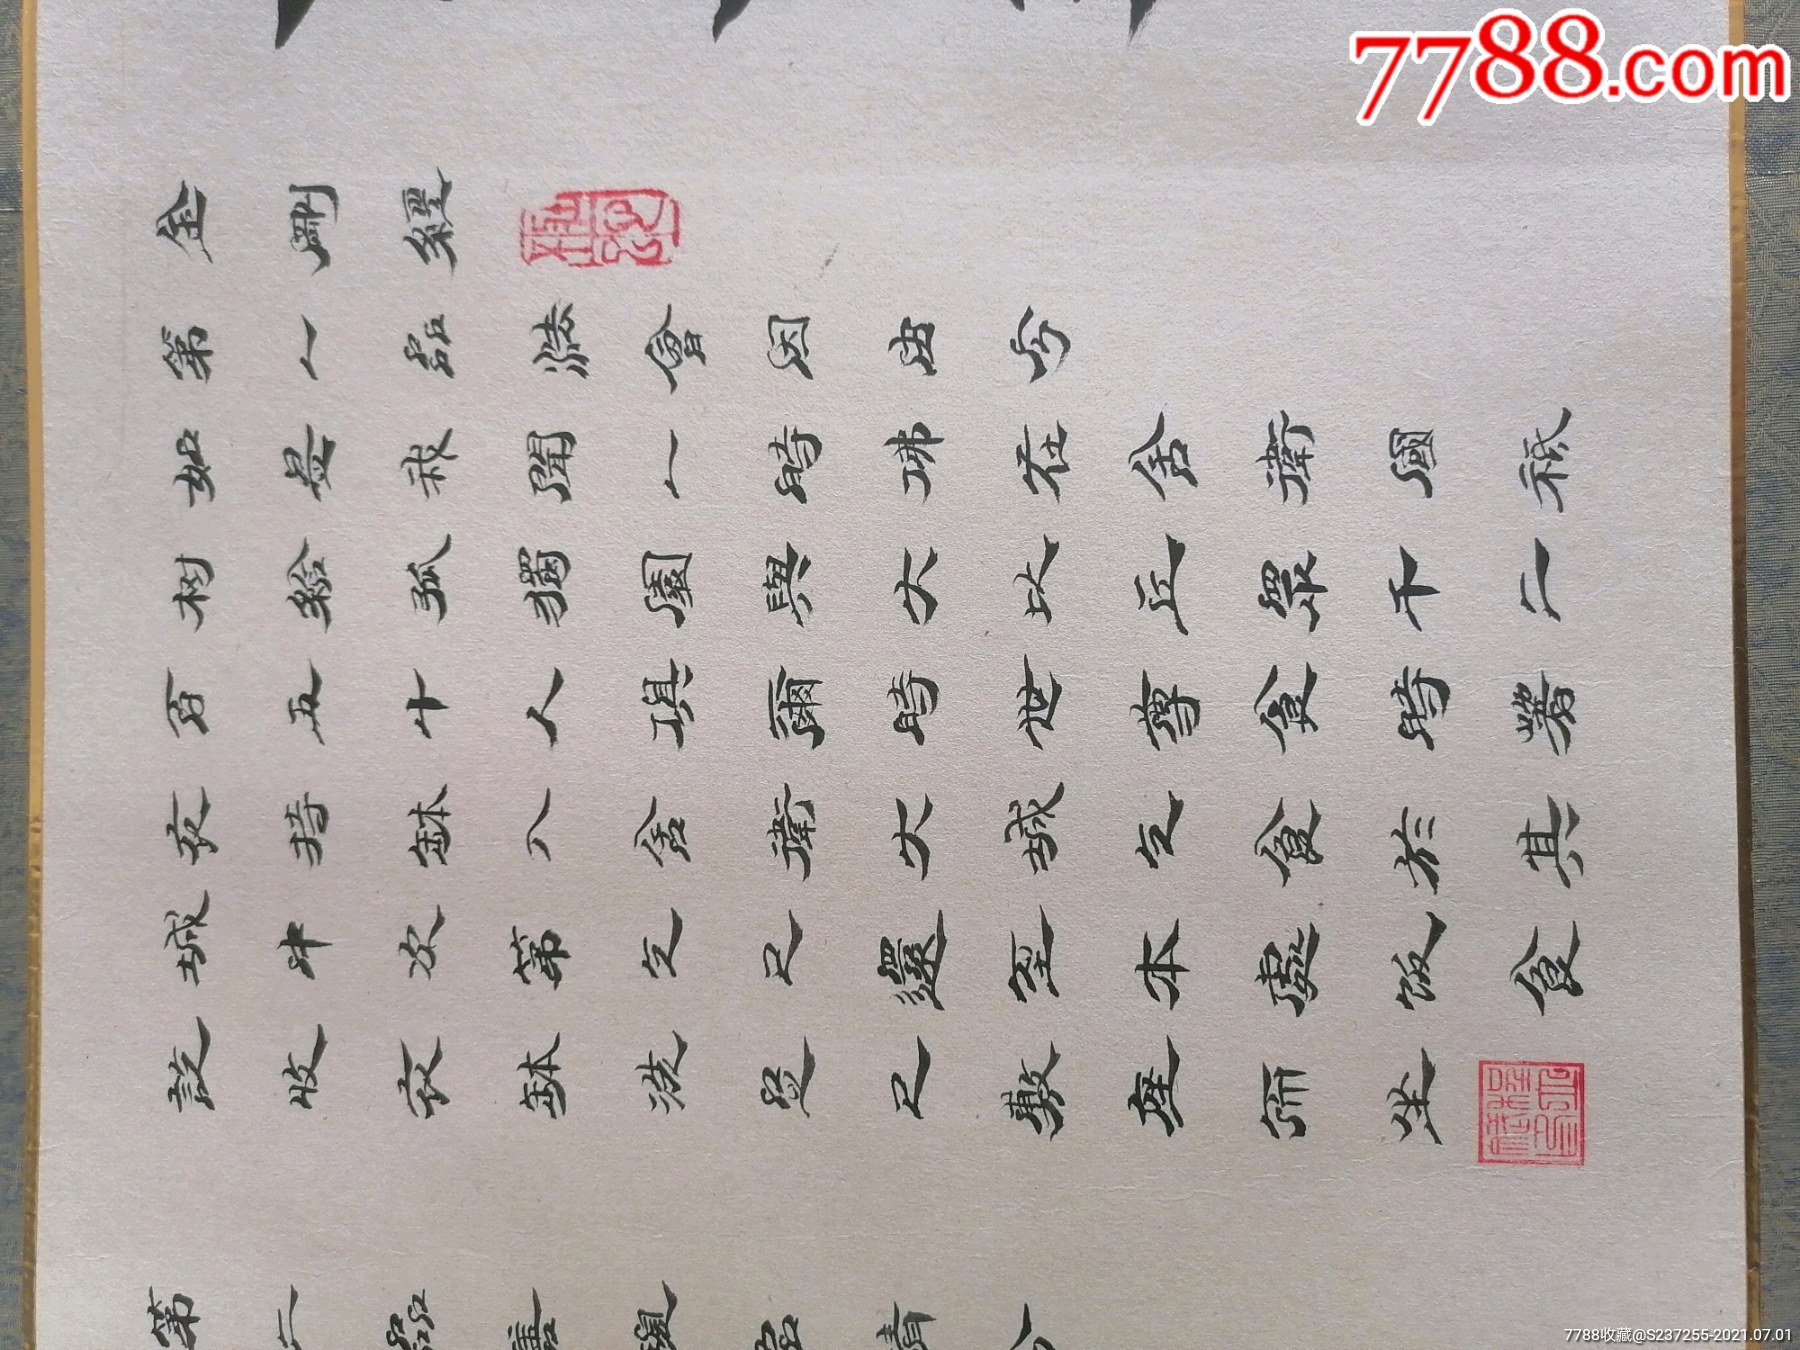 7788.com
金剛經
第一品法會因由分
如是我聞一時佛在舍衛國祇
树給孤獨園與大比丘眾千二
百五十人俱爾時世尊食時著
衣持鉢入舍衛大城乞食於其
城中次第乞已還至本處飯食
訖收衣鉢洗足已敷座而坐
第二品善現請分
7788收藏@S237255-2021.07.01